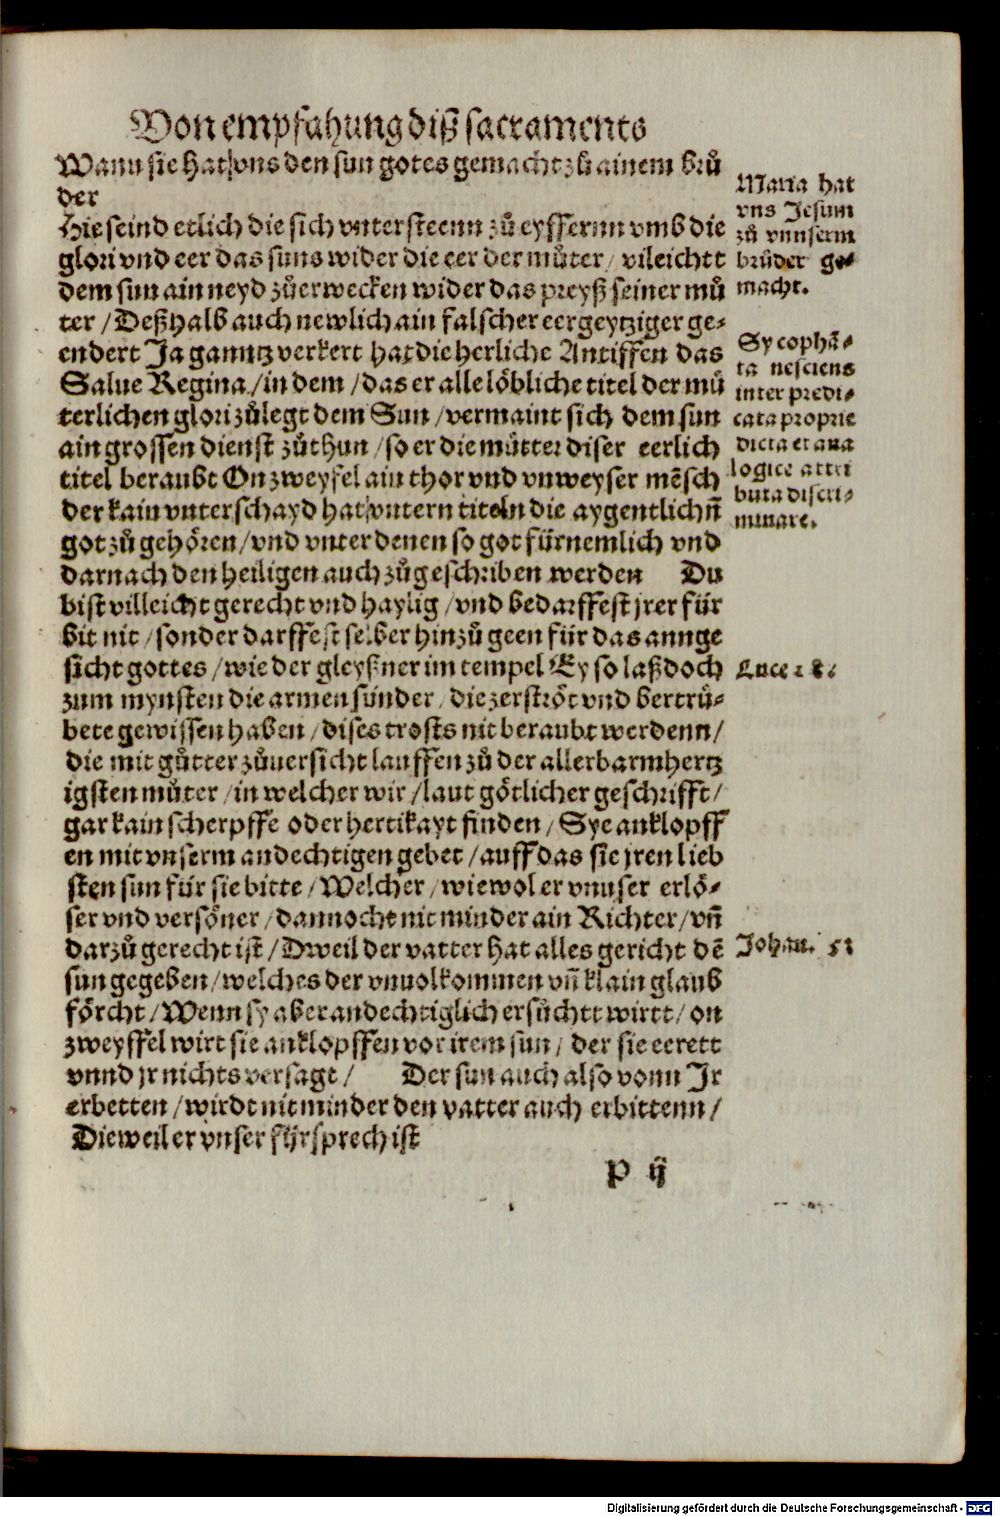 Von empfahung diß sacraments
Wann sie hat vns den sun gotes gemacht zů ainem brů
der
Hie seind etlich die sich vntersteenn zů eyffernn vmb die
glori vnd eer das suns wider die eer der můter / vileichtt
dem sun ain neyd zůerwecken wider das preyß seiner mů
ter / Deßhalb auch newlich ain falscher eergeytziger ge⸗
endert Ja ganntz verkert hat die herliche Antiffen das
Salue Regina / in dem / das er alle löbliche titel der mů
terlichen glori zůlegt dem Sun / vermaint sich dem sun
ain grossen dienst zůthun / so er die můtter diser eerlich
titel beraubt On zweyfel ain thor vnd vnweyser mēsch
der kain vnterschayd hat vntern titeln die aygentlichn̄
got zů gehören / vnd vnter denen so got fürnemlich vnd
darnach den heiligen auch zůgeschriben werden Du
bist villeicht gerecht vnd haylig / vnd bedarffest jrer für
bit nit / sonder darffest selber hinzů geen für das annge
sicht gottes / wie der gleyßner im tempel Ey so laß doch
zum mynsten die armen sünder / die zerströt vnd bertrü⸗
bete gewissen haben / dises trosts nit beraubt werdenn /
die mit gůtter zůuersicht lauffen zů der allerbarmhertz
igsten můter / in welcher wir / laut götlicher geschrifft /
gar kain scherpffe oder hertikayt finden / Sye anklopff
en mit vnserm andechtigen gebet / auff das sie jren lieb
sten sun für sie bitte / Welcher / wiewol er vnuser erlö⸗
ser vnd versöner / dannocht nit minder ain Richter / vn̄
darzů gerecht ist / Dweil der vatter hat alles gericht dē
sun gegeben / welches der vnuolkommen vn̄ klain glaub
förcht / Wenn sy aber andechtiglich ersůchtt wirtt / on
zweyffel wirt sie anklopffen vor irem sun / der sie eerett
vnnd jr nichts versagt / Der sun auch also vonn Jr
erbetten / wirdt nit minder den vatter auch erbittenn /
Dieweil er vnser fürsprech ist
P ij
Maria hat
vns Jesum
zů vnnserm
brůder ge⸗
macht.
Sycophā⸗
ta nesciens
inter predi⸗
cata proprie
dicta et ana
logice attri
buta discri⸗
minare.
Luce 18.
Johan. 5
Digitalisierung gefördert durch die Deutsche Forschungsgemeinschaft - DFG